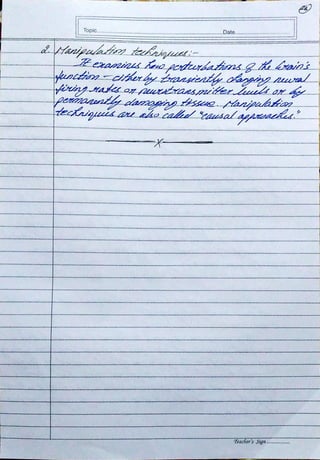 26
Topic
Date
2. Manipulation techniques:-
It examines how perturbations of the brain's
function - either by transiently changing neural
firing rates or neurotransmitter levels or by
permanently damaging tissue. Manipulation
techniques are also called "causal approaches."
x
Teacher's Sign.: